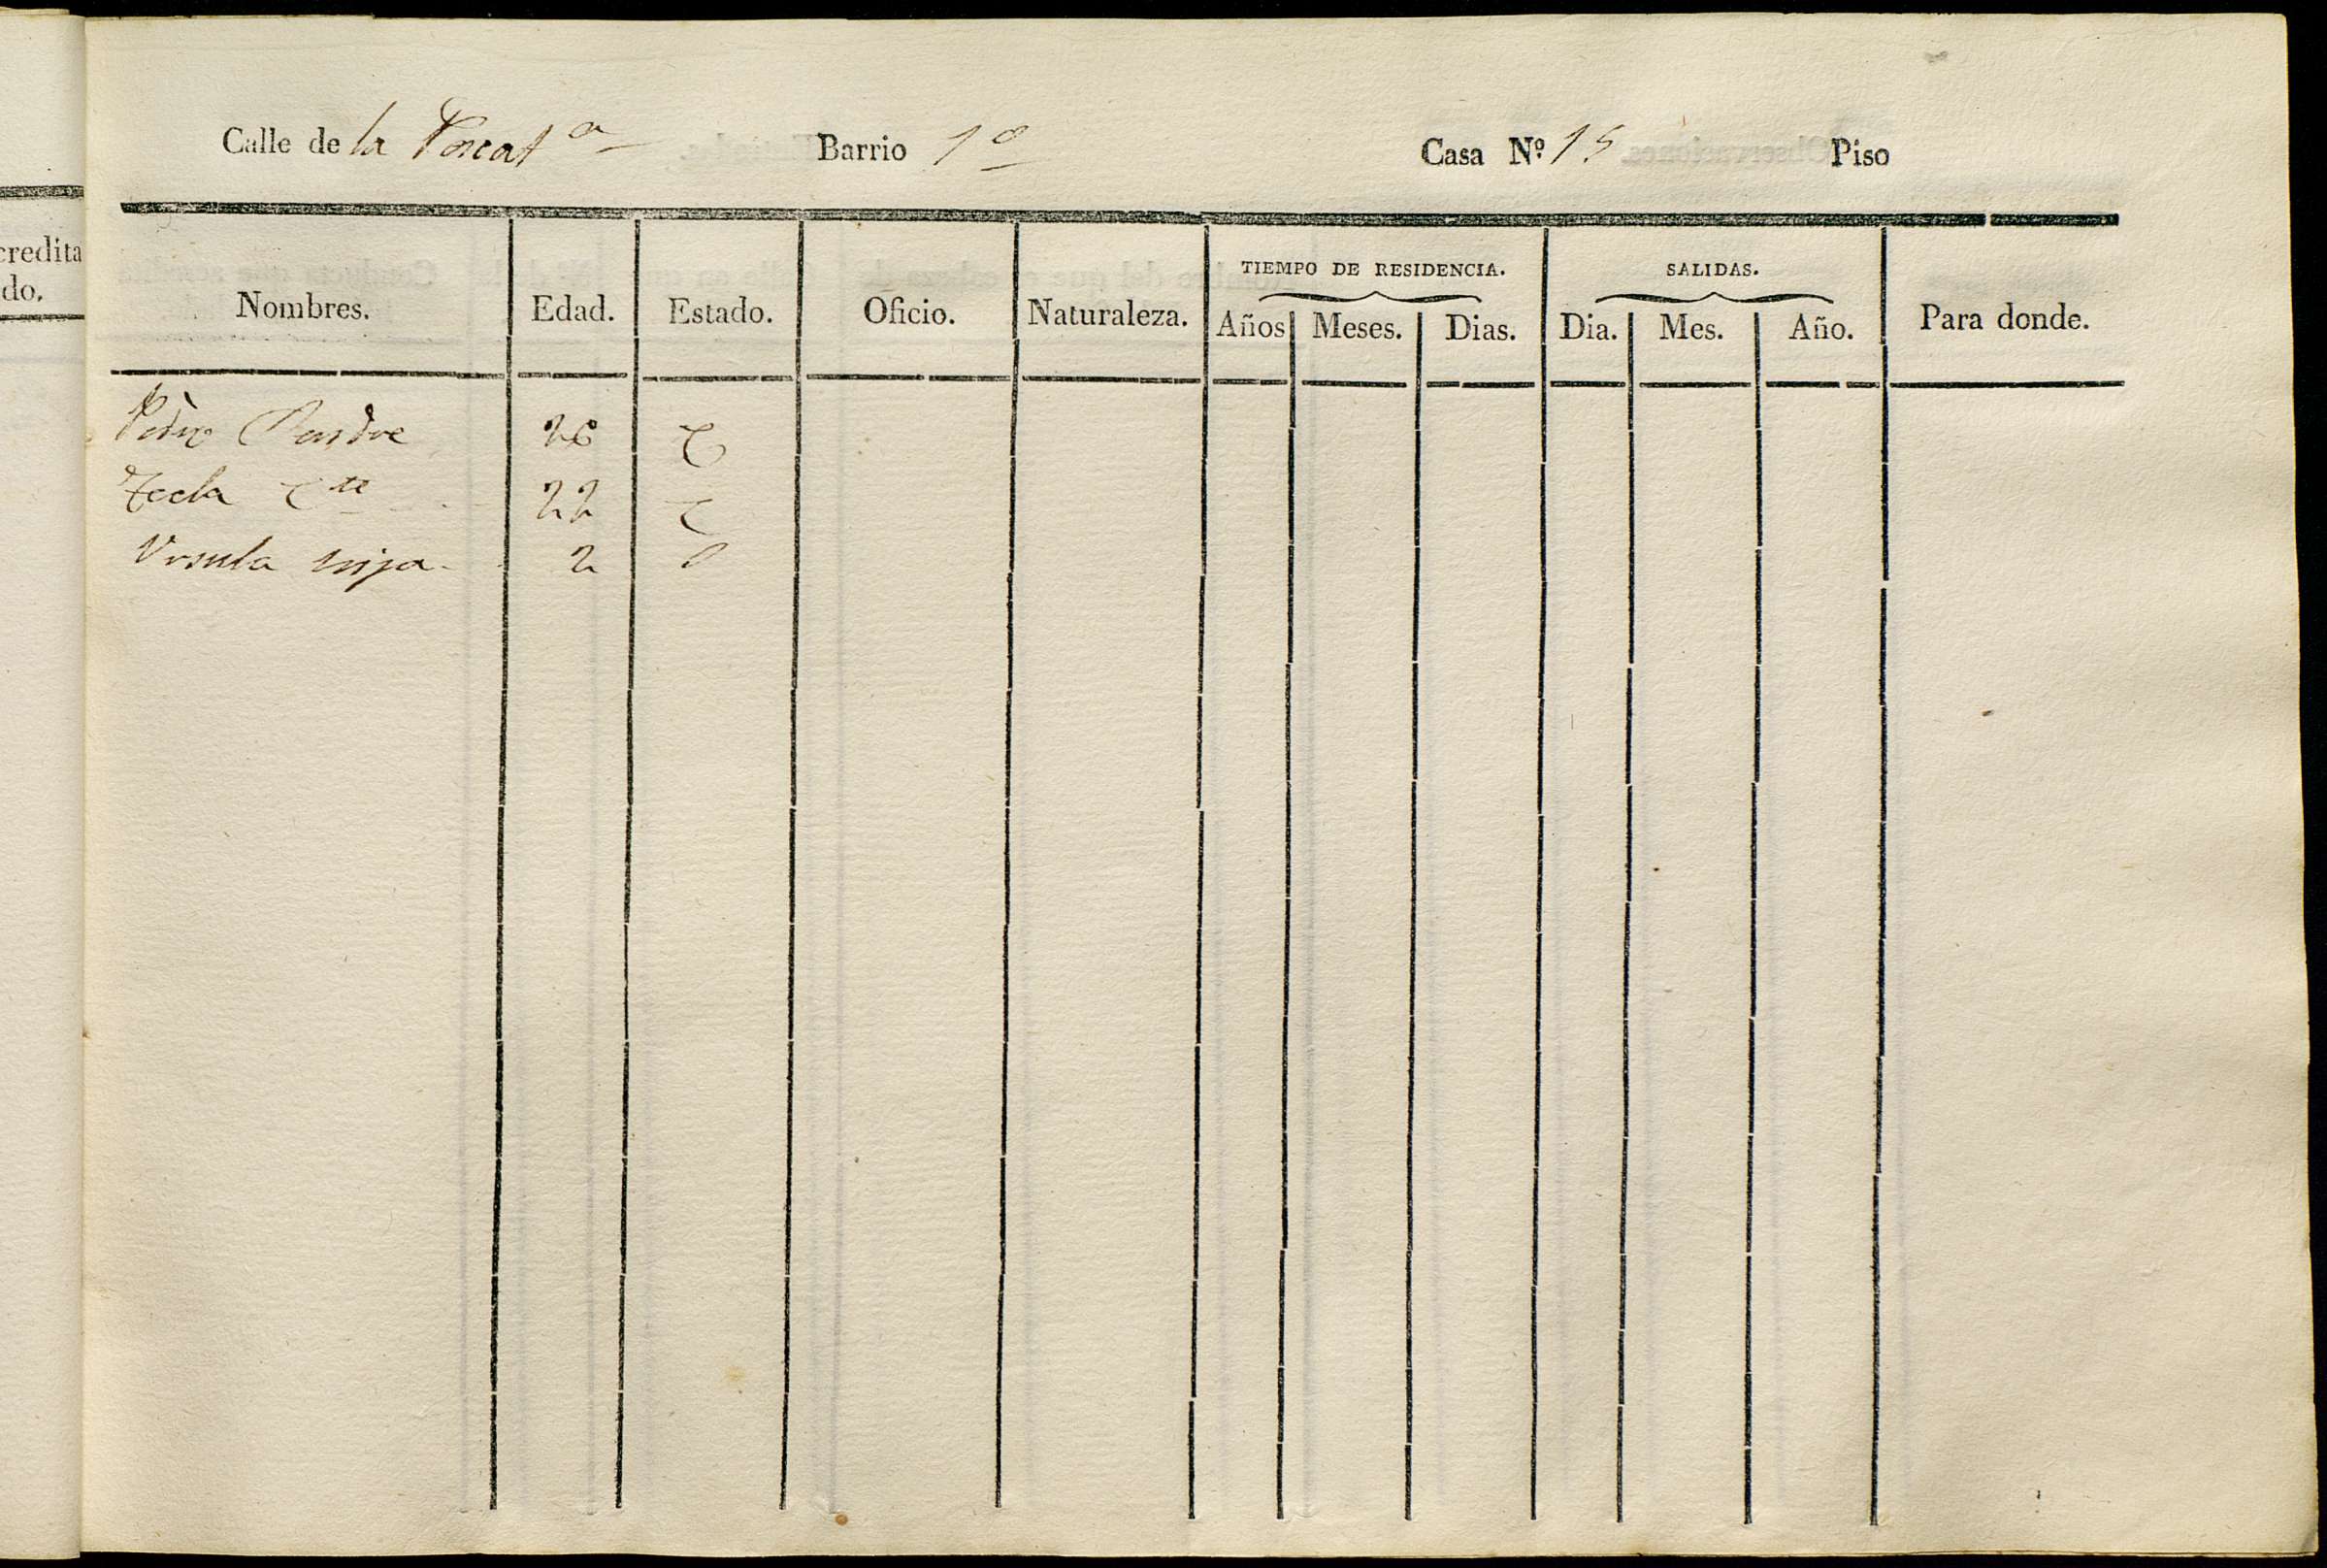 credita
do.
Calle de la Pescatª Barrio 1º Casa Nº 15 Piso
TIEMPO DE RESIDENCIA. SALIDAS.
Nombres. Edad. Estado. Oficio. Naturaleza. Años Meses. Dias. Dia. Mes. Año. Para donde.
Pedro 26 C
Tecla 22 C
Vrsula hija 2